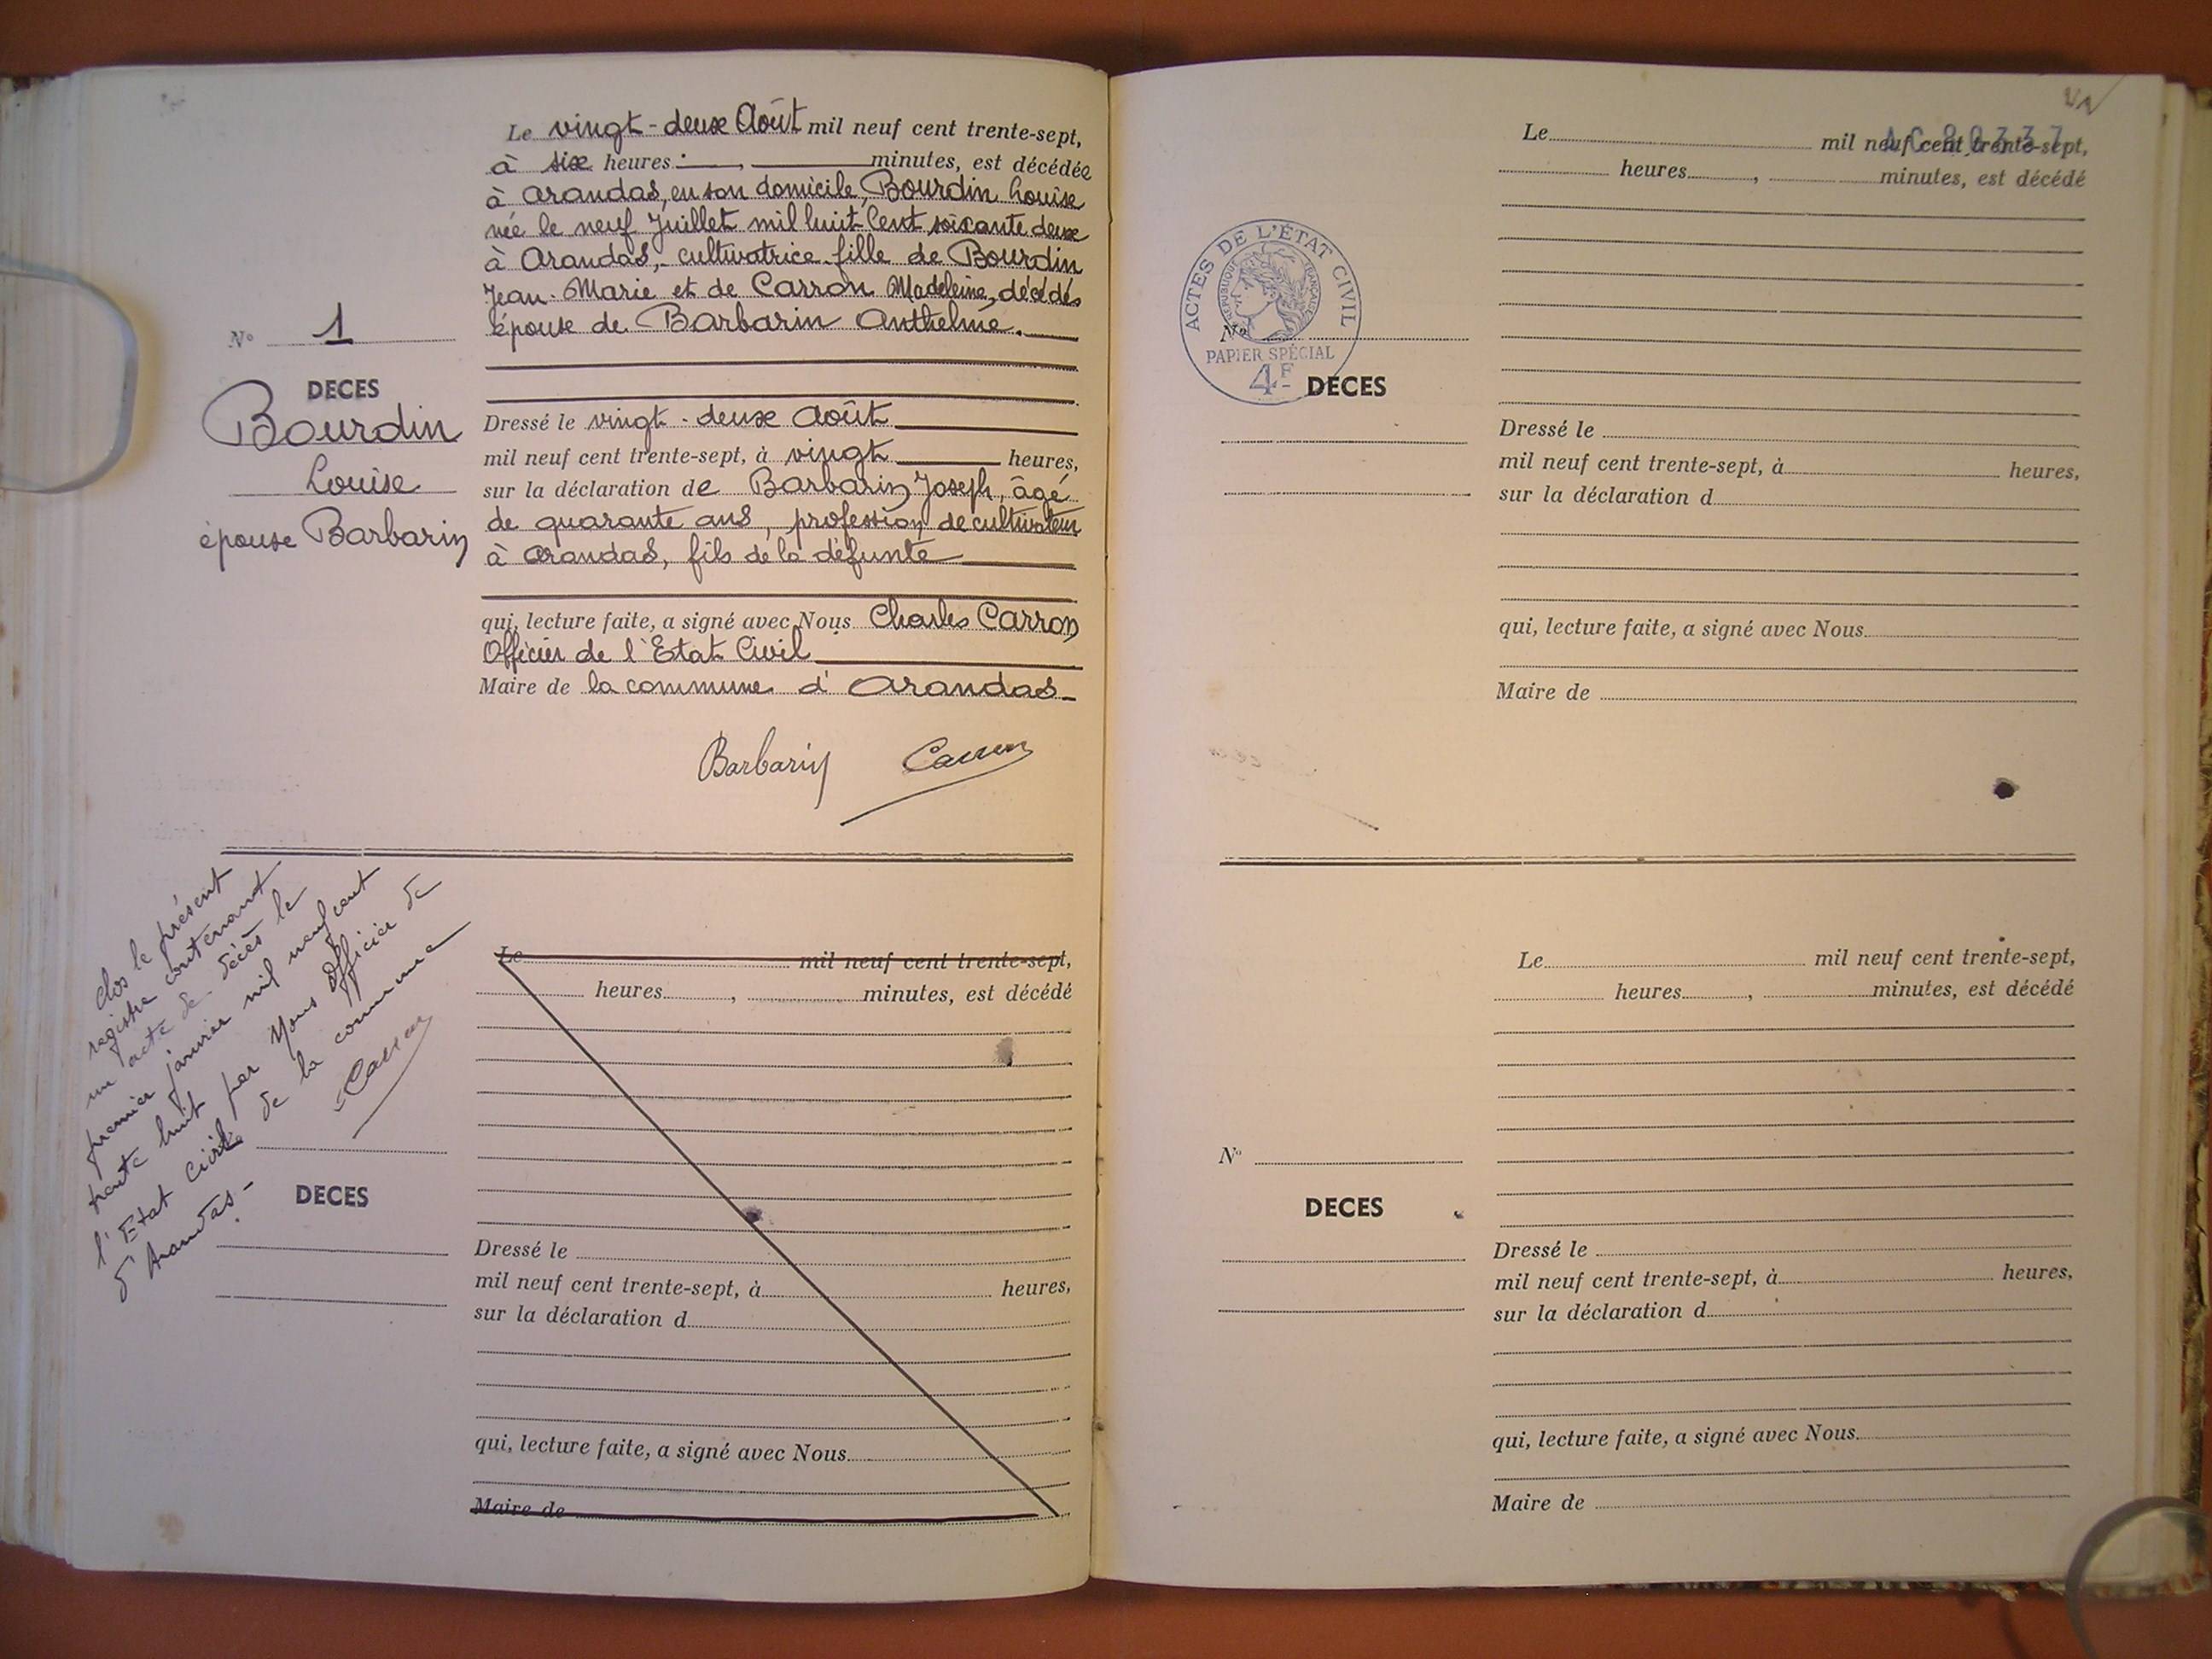 Le vingt-deux Août mil neuf cent trente-sept,
à six heures : , minutes, est décédée
à Arandas, en son domicile, Bourdin Louise
née le neuf Juillet mil huit Cent soixante deux
à Arandas, cultivatrice fille de Bourdin
Jean-Marie et de Carron Madeleine, décédés
épouse de Barbarin Anthelme.
N° 1
DECES
Bourdin
Louise
épouse Barbarin
Dressé le vingt-deux Août
mil neuf cent trente-sept, à vingt heures,
sur la déclaration de Barbarin Joseph, âgé
de quarante ans, profession de cultivateur
à Arandas, fils de la défunte
qui, lecture faite, a signé avec Nous Charles Carron
Officier de l'Etat Civil
Maire de la commune d'Arandas
Barbarin Carron
Clos le présent
registre contenant
un acte de décès le
premier janvier mil neuf cent
trente huit par Nous Officier de
l'Etat Civil de la commune
d'Arandas -
Carron
DECES
Le mil neuf cent trente-sept,
heures , minutes, est décédé
Dressé le
mil neuf cent trente-sept, à heures,
sur la déclaration d
qui, lecture faite, a signé avec Nous
Maire de
Le mil neuf cent trente-sept,
heures , minutes, est décédé
ACTES DE L'ÉTAT CIVIL
RÉPUBLIQUE FRANÇAISE
PAPIER SPÉCIAL
4F
N°
DECES
Dressé le
mil neuf cent trente-sept, à heures,
sur la déclaration d
qui, lecture faite, a signé avec Nous
Maire de
Le mil neuf cent trente-sept,
heures , minutes, est décédé
N°
DECES
Dressé le
mil neuf cent trente-sept, à heures,
sur la déclaration d
qui, lecture faite, a signé avec Nous
Maire de